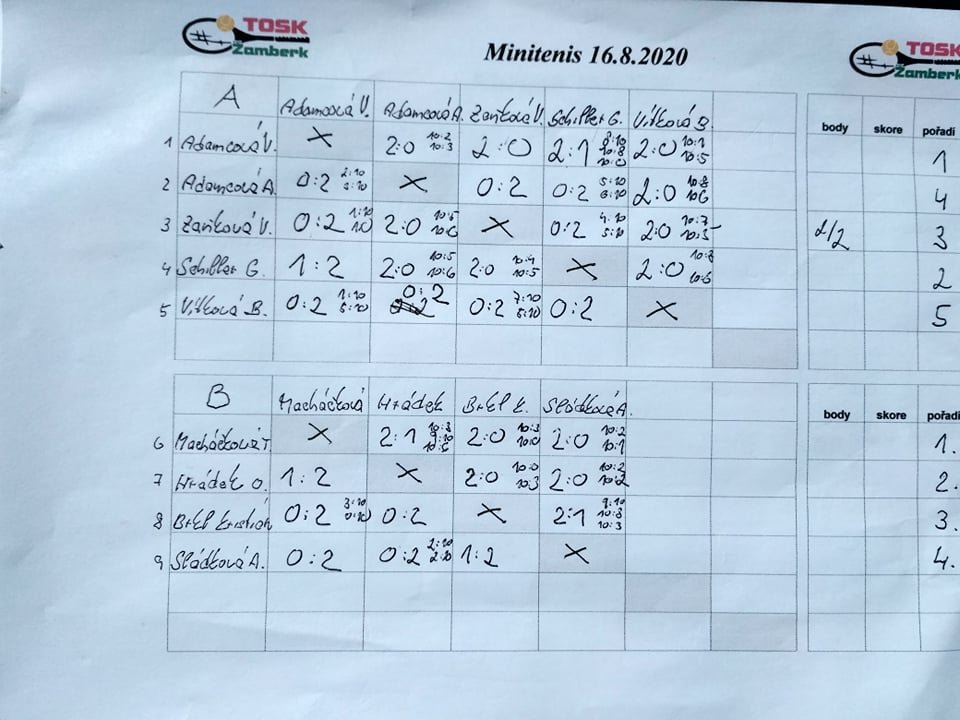 TOSK
Žamberk
Minitenis 16.8.2020
TOSK
Žamberk
A Adamcová V. Adamcová A. Zaňková V. Schiller G. Vítková B.
body skore pořadí
1 Adamcová V. X 2:0 10:2 10:3 2:0 2:1 9:10 10:8 10:0 2:0 10:1 10:5 1
2 Adamcová A. 0:2 2:10 3:10 X 0:2 0:2 5:10 6:10 2:0 10:8 10:6 4
3 Zaňková V. 0:2 1:10 2:0 10:5 10:6 X 0:2 4:10 5:10 2:0 10:7 10:5 3
4 Schiller G. 1:2 2:0 10:5 10:6 2:0 10:4 10:5 X 2:0 10:8 10:6 2
5 Vítková B. 0:2 1:10 5:10 0:2 0:2 7:10 5:10 0:2 X 5
B Macháčková Hrádek Brkl K. Sládková A.
body skore pořadí
6 Macháčková T. X 2:1 10:8 9:10 10:5 2:0 10:3 10:0 2:0 10:2 10:1 1.
7 Hrádek O. 1:2 X 2:0 10:0 10:3 2:0 10:2 10:2 2.
8 Brkl Kristián 0:2 3:10 0:10 0:2 X 2:1 9:10 10:8 10:3 3.
9 Sládková A. 0:2 0:2 2:10 2:10 1:2 X 4.